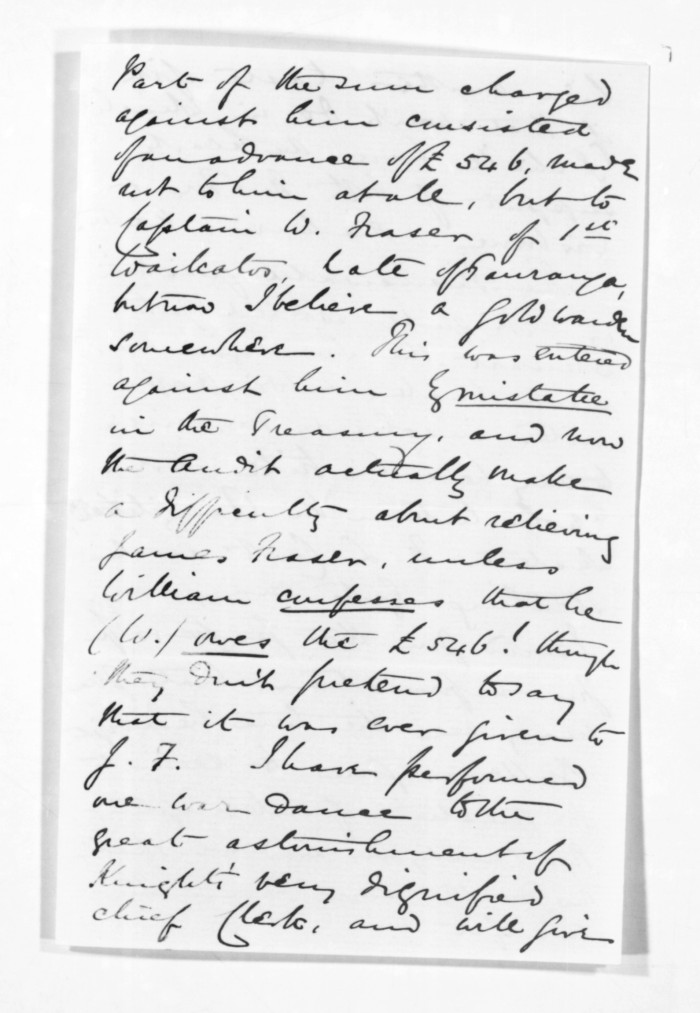 Part of the sum charged
against him consisted
of an advance of £546, made
not to him at all, but to
Captain W. Fraser of 1st
Waikatos, late of Tauranga,
but now I believe a Gold warden
somewhere. This was entered
against him by mistake
in the Treasury, and now
the Audit actually make
a difficulty about relieving
James Fraser, unless
William confesses that he
(W.) owes the £546! though
they don't pretend to say
that it was ever given to
J. F. I have performed
one war dance to the
great astonishment of
Knight's very dignified
chief Clerk, and will give